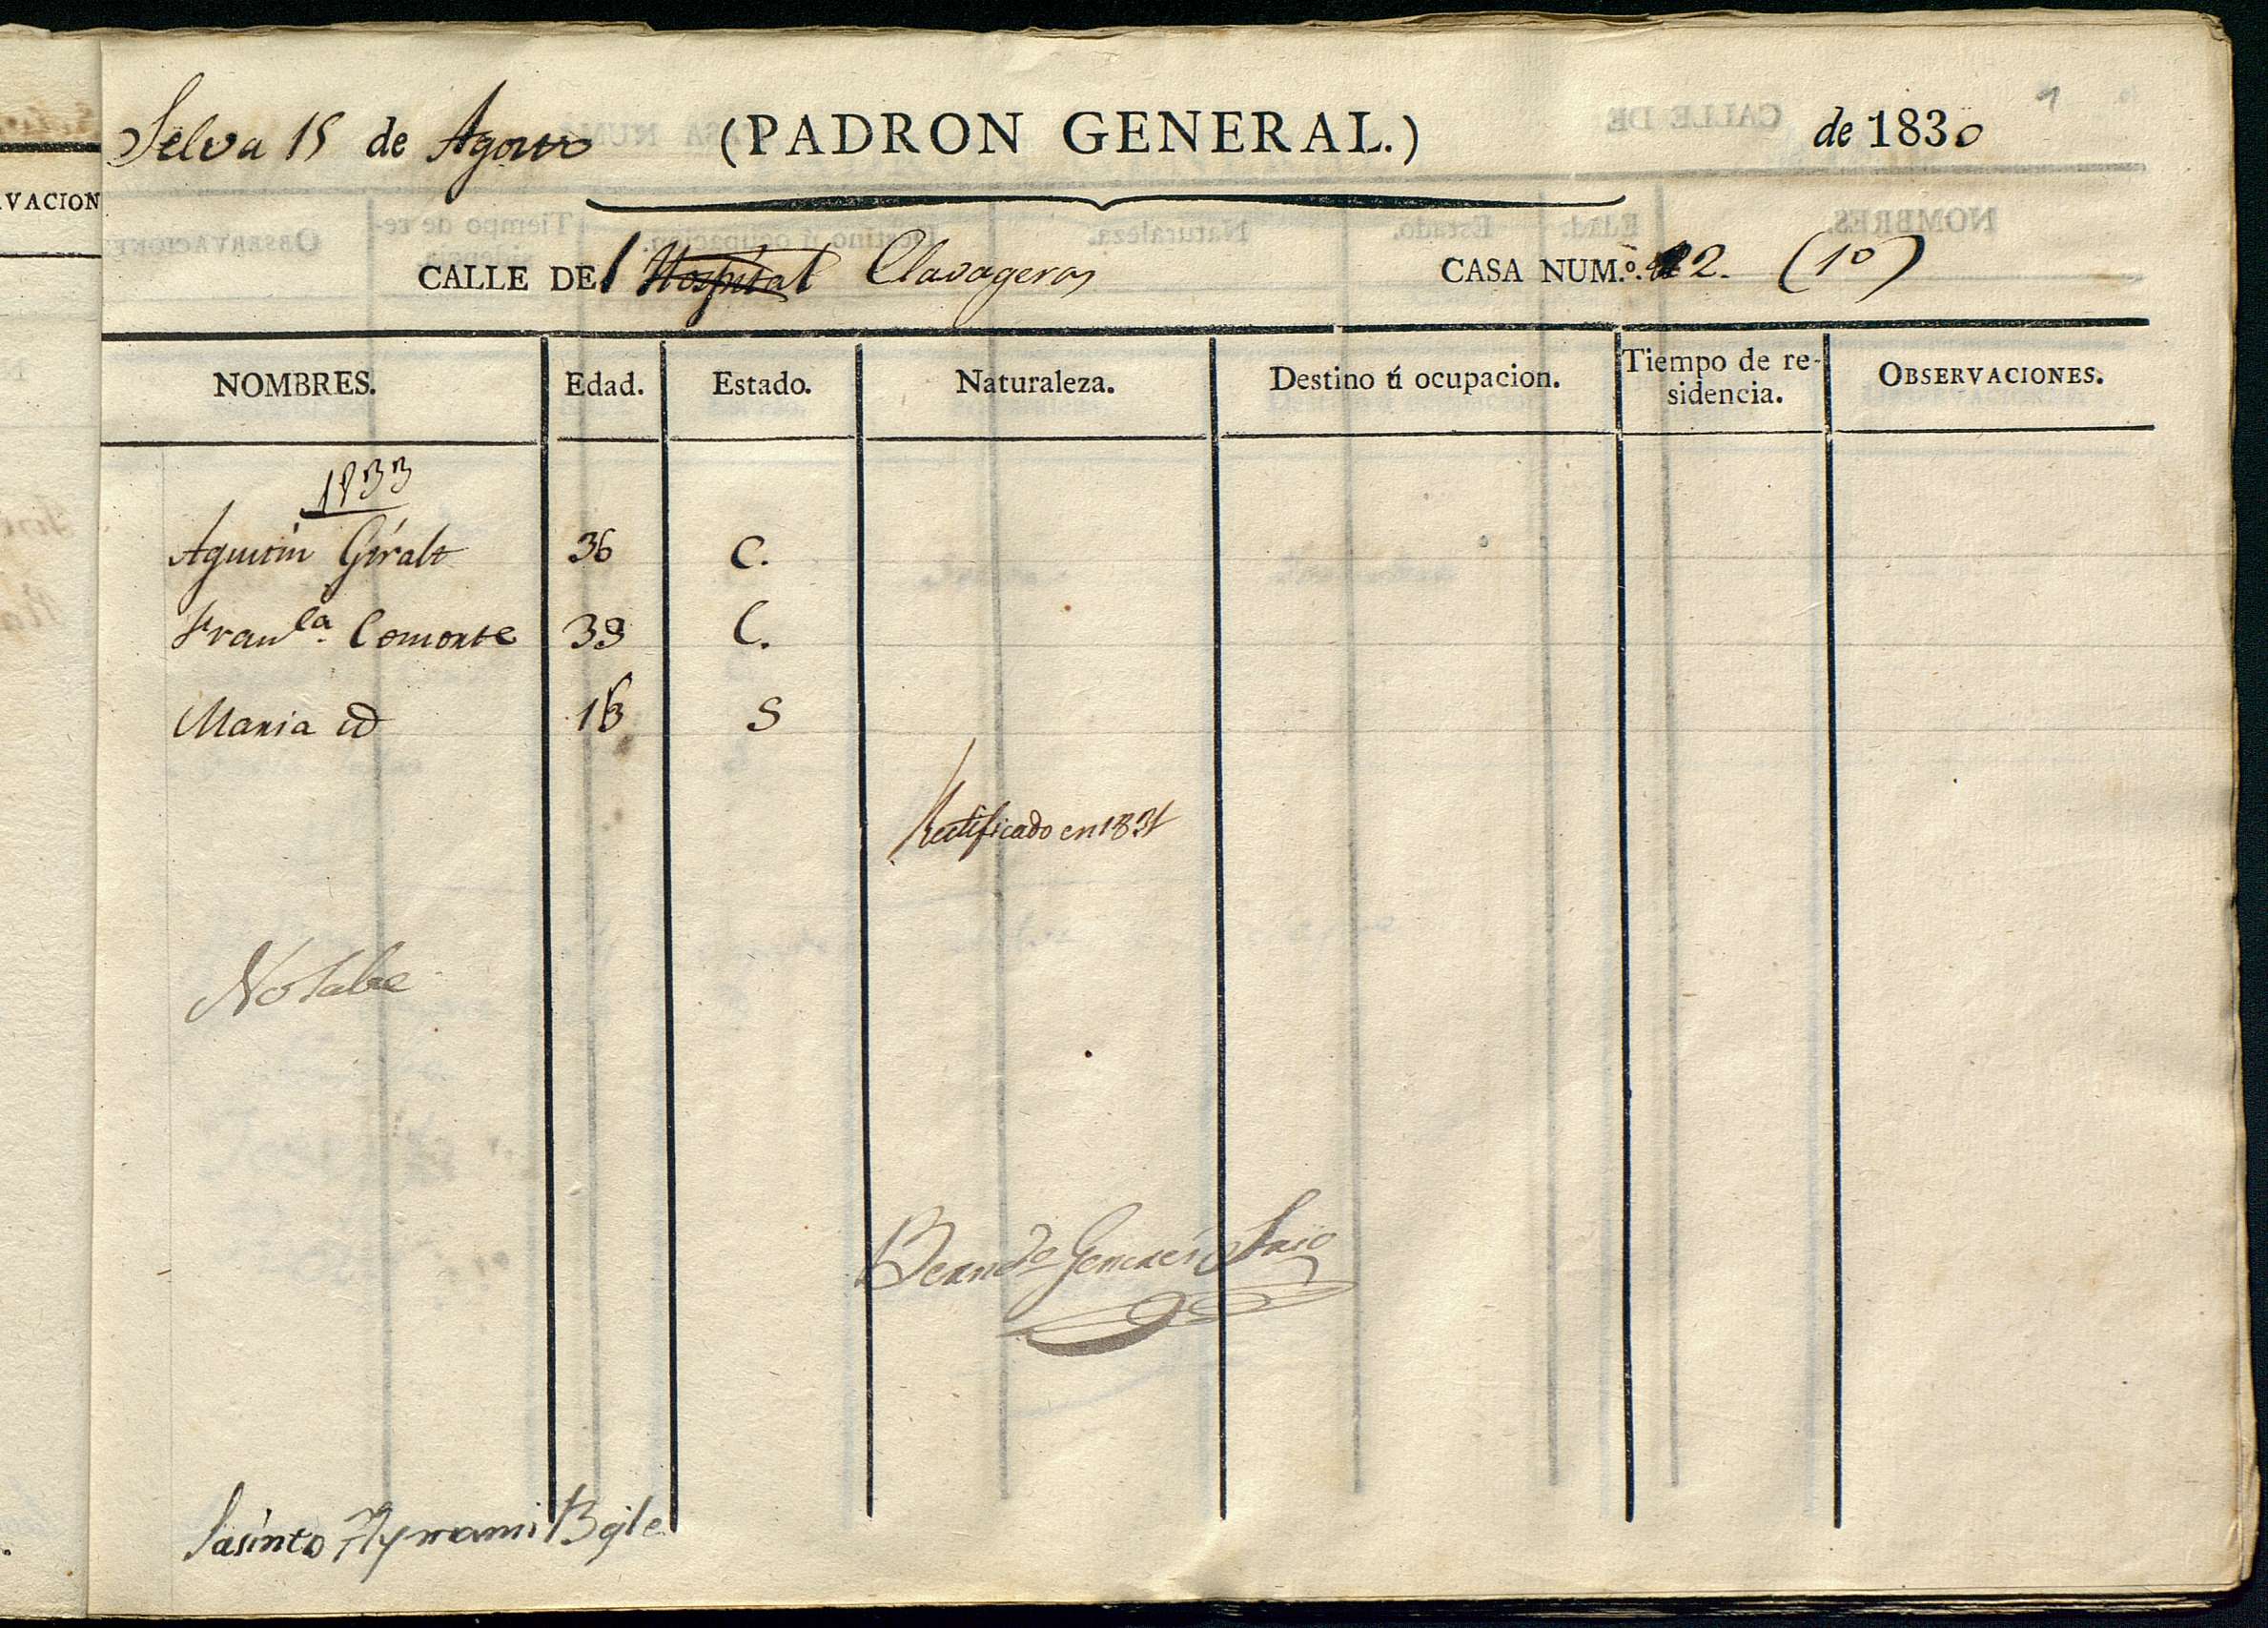 Selva 15 de Agosto (PADRON GENERAL.) de 1830
CALLE DEl Hospital Clavageras CASA NUM.º 2. (1º)
NOMBRES. Edad. Estado. Naturaleza. Destino ú ocupacion. Tiempo de residencia. OBSERVACIONES.
1833
Agustin Giralt 36 C.
Fran.ca Comorte 39 C.
Maria id 16 S
Rectificado en 1831
Notabe
Jasinto Aymami Bgle